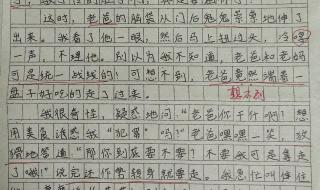 这时，老爸的脑袋从门后鬼鬼祟祟地伸了
出来。我看了他一眼，然后马上扭过头，冷哼
一声，不理他。别以为我不知道，老爸和老妈
可是统一战线的！可想不到，老爸竟然端着一
盘子好吃的走了过来。
想不到
我很奇怪，疑惑地问：“老爸你干什么啊？想
用美食诱惑我“犯罪”吗？”老爸嘿嘿一笑，放
滑地答道：“那你到底要不要？不要我可是拿走
了哦！”说完还作势转身就要走。我急忙叫住